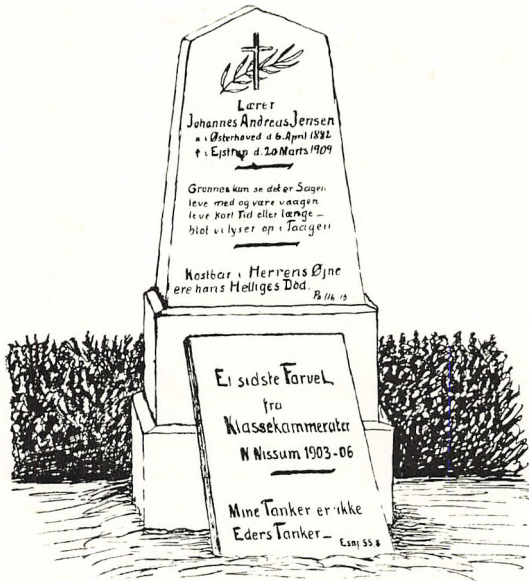 Lærer
Johannes Andreas Jensen
* i Østerhoved d. 6. April 1882
† i Ejstrup d. 20 Marts 1909
Grunnes kun se det er Sagen
leve med og være vaagen
leve kort Tid eller længe –
blot vi lyser op i Taagen
Kostbar i Herrens Øjne
ere hans Helliges Død.
Ps 116 15
Et sidste Farvel
fra
Klassekammerater
N Nissum 1903-06
Mine Tanker er ikke
Eders Tanker –
Esaj 55.8